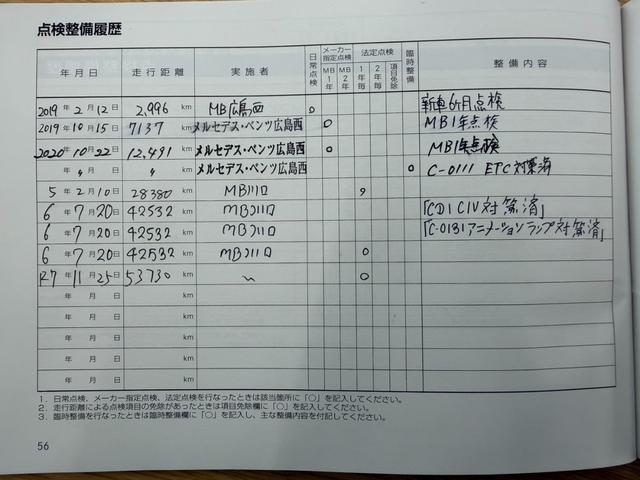 点検整備履歴
年月日 走行距離 実施者 日常点検 メーカー指定点検 MB1年 MB2年 法定点検 1年毎 2年毎 項目免除 臨時整備 整備内容
2019年2月12日 2,996 km MB広島西 ○ 新車6ヶ月点検
2019年10月15日 7137 km メルセデス・ベンツ広島西 ○ MB1年点検
2020年10月22日 12,491 km メルセデス・ベンツ広島西 ○ MB1年点検
年〃月日 〃 km メルセデス・ベンツ広島西 ○ C-0111 ETC対策済
5年2月10日 28380 km MB川口
6年7月20日 42532 km MB川口 「CD1 CIV対策済」
6年7月20日 42532 km MB川口 「C-0131アニメーションランプ対策済」
6年7月20日 42532 km MB川口 ○
R7年11月25日 53730 km 〃 ○
年月日 km
年月日 km
年月日 km
年月日 km
年月日 km
1．日常点検、メーカー指定点検、法定点検を行なったときは該当箇所に「○」を記入してください。
2．走行距離による点検項目の免除があったときは項目免除欄に「○」を記入してください。
3．臨時整備を行なったときは臨時整備欄に「○」を記入し、主な整備内容を付記してください。
56